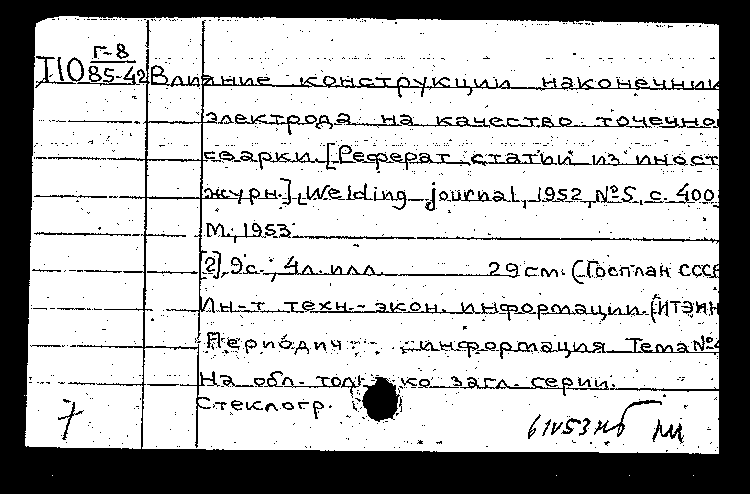 Г-8
П10 85-42 Влияние конструкции наконечник
электрода на качество точечно
сварки. [Реферат статьи из иност
журн.], Welding journal, 1952, №5, с. 400
М., 1953
[2], 9с., 4л. илл. 29см. (Госплан СССР
Ин-т техн.-экон. информации. (ИТЭИН
Периодич информация Тема №4
На обл. только загл. серии.
Стеклогр.